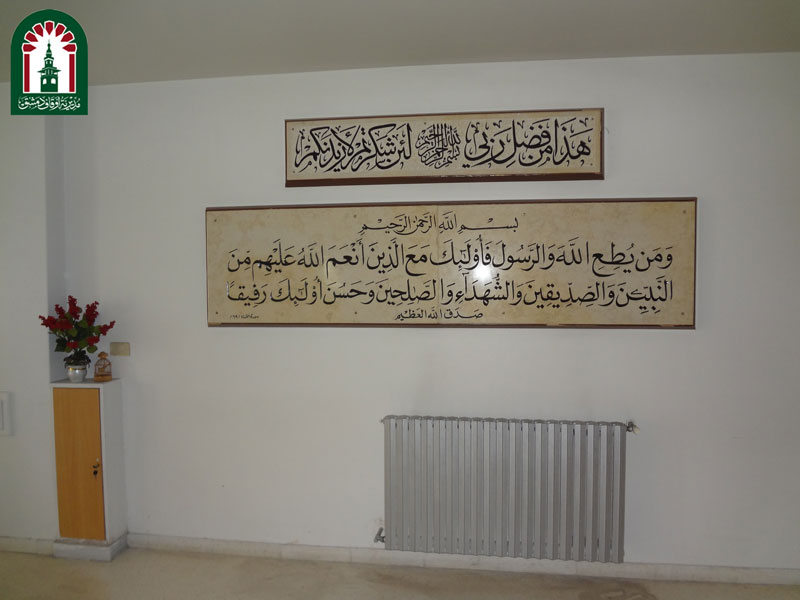 مديرية أوقاف دمشق
هَذَا مِن فَضْلِ رَبِّي بسم الله الرحمن الرحيم لَئِن شَكَرْتُمْ لَأَزِيدَنَّكُمْ
بِسْمِ اللَّهِ الرَّحْمَنِ الرَّحِيمِ
وَمَن يُطِعِ اللَّهَ وَالرَّسُولَ فَأُوْلَٰٓئِكَ مَعَ الَّذِينَ أَنْعَمَ اللَّهُ عَلَيْهِم مِّنَ
النَّبِيِّنَ وَالصِّدِّيقِينَ وَالشُّهَدَآءِ وَالصَّٰلِحِينَ وَحَسُنَ أُوْلَٰٓئِكَ رَفِيقًا
صَدَقَ اللَّهُ الْعَظِيم